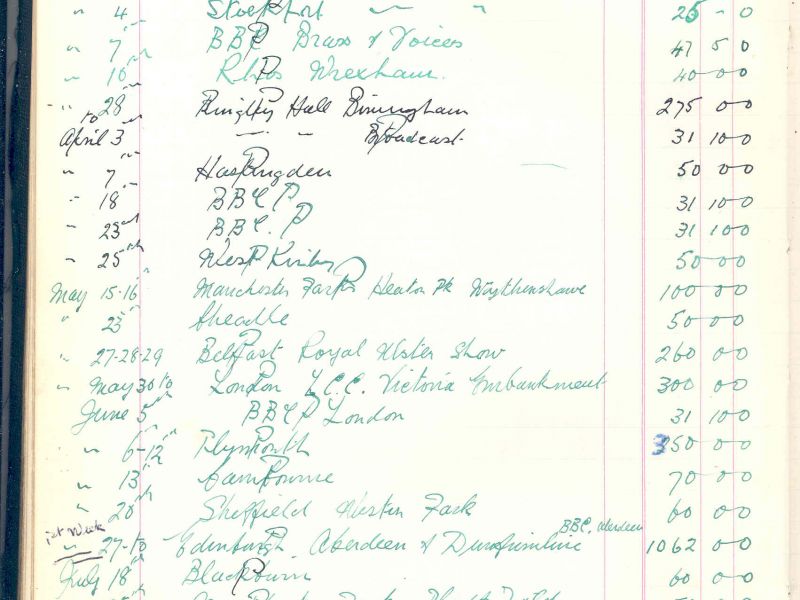 " 4 Stockport " " 25 - 0
" 7th BBC Brass & Voices 47 5 0
" 16 Rhos Wrexham. 40 00
" 28 to Hall Birmingham 275 00
April 3 " " Broadcast 31 10 0
" 7th Haslingden 50 00
" 18 BBC P 31 10 0
" 23rd BBC. P 31 10 0
" 25th West Kirby 50 00
May 15-16 Manchester Parks Heaton Pk Wythenshawe 100 00
" 23 Cheadle 50 00
" 27-28-29 Belfast Royal Ulster Show 260 00
" May 30 to London L.C.C. Victoria Embankment 300 00
June 5th BBC P London 31 10 0
" 6-12th Plymouth 350 00
" 13th Cambourne 70 00
" 20th Sheffield Weston Park 60 00
1st Week BBC. Aberdeen
" 27-to Edinburgh, Aberdeen & Dunfirmline 1062 00
July 18th Blackburn 60 00